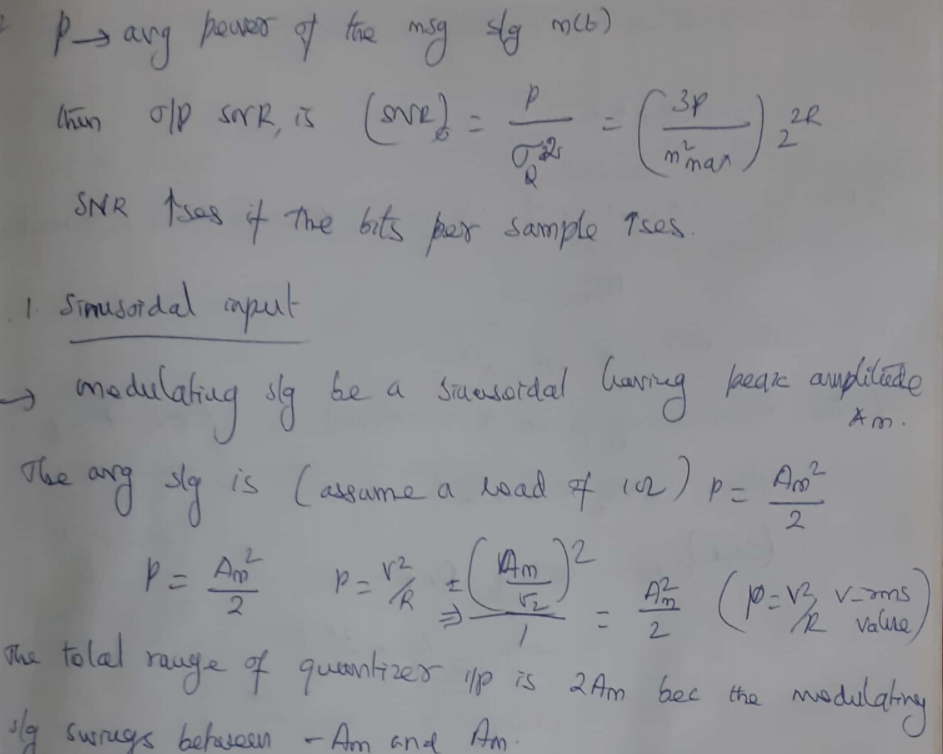 P → avg power of the msg s/g m(t)
then o/p SNR, is (SNR)₀ = P / σ_Q² = (3P / m²max) 2^2R
SNR ↑ses if the bits per sample ↑ses.
1. Sinusoidal input
→ modulating s/g be a sinusoidal having peak amplitude
Am.
The avg s/g is (assume a load of 1Ω) P = Am²/2
P = Am²/2 P = V²/R ⇒ (Am/√2)²/1 = Am²/2 (P = V²/R V=rms value)
The total range of quantizer i/p is 2Am bec the modulating
s/g swings between -Am and Am.